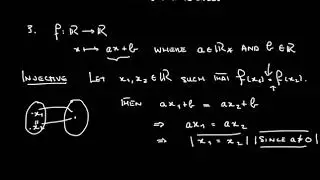 3. f: ℝ → ℝ
x ↦ ax+b WHERE a ∈ ℝ* AND b ∈ ℝ
INJECTIVE LET x₁, x₂ ∈ ℝ SUCH THAT f(x₁) = f(x₂).
THEN ax₁+b = ax₂+b
⇒ ax₁ = ax₂
⇒ | x₁ = x₂ | | SINCE a≠0 |
·x₁
"
·x₂